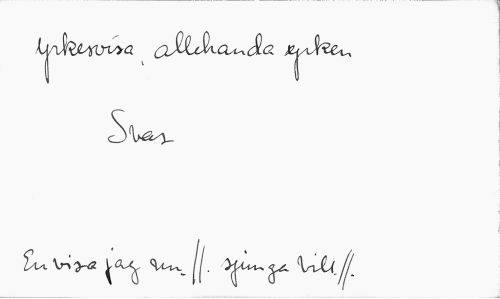 yrkesvisa, allehanda yrken
Svar
En visa jag nu. //. sjunga vill. //.